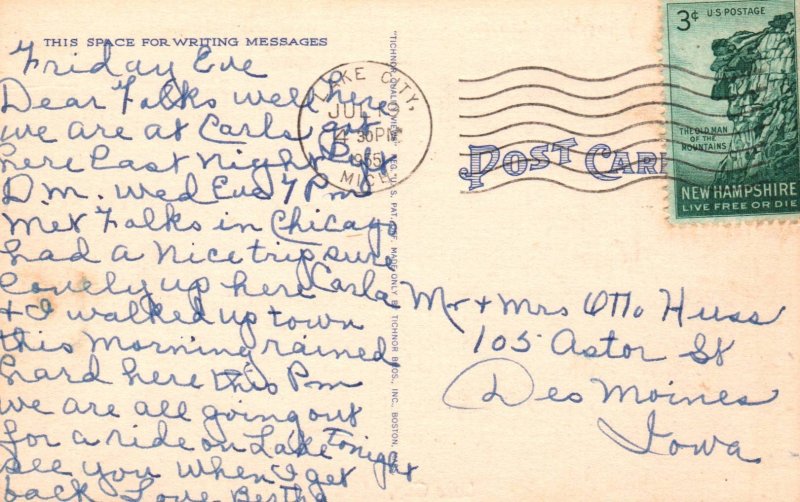 THIS SPACE FOR WRITING MESSAGES
Friday Eve
Dear Folks well here
we are at Carls got
here Last Night Left
D.M. Wed Eve 7 Pm
Met Folks in Chicago
had a Nice trip sure
lovely up here Carla
+ I walked up town
this morning rained
hard here this Pm
we are all going out
for a ride on Lake Tonight
see you when I get
back Love Bertha
"TICHNOR QUALITY VIEWS" REG. U. S. PAT. OFF. MADE ONLY BY TICHNOR BROS., INC. BOSTON,
LAKE CITY,
JUL
4 30 PM
1955
MICH.
POST CARD
3¢ U·S·POSTAGE
THE OLD MAN
OF THE
MOUNTAINS
NEW HAMPSHIRE
LIVE FREE OR DIE
Mr + Mrs Otto Huss
105 Astor St
Des Moines
Iowa